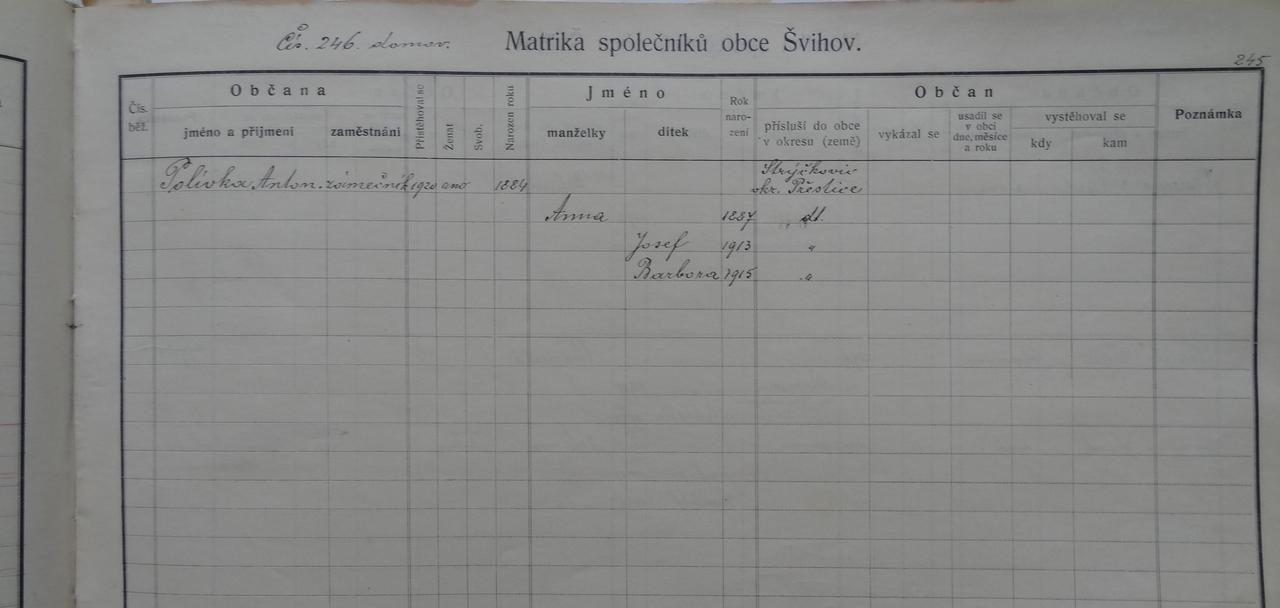 Čís. 246. domov. Matrika společníků obce Švihov.
245
Občana Jméno Občan
Čís. běž. jméno a příjmení zaměstnání Přistěhoval se Ženat Svob. Narozen roku manželky dítek Rok naro- zení přísluší do obce v okresu (země) vykázal se usadil se v obci dne, měsíce a roku vystěhoval se kdy kam Poznámka
Polívka Anton. zámečník 1920 ano 1884 okr. Přeštice
Anna 1887 dt.
Josef 1913 "
Barbora 1915 "